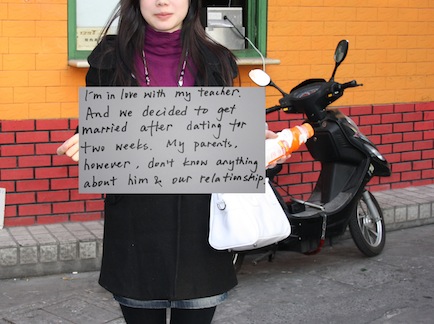 I'm in love with my teacher.
And we decided to get
married after dating for
two weeks. My parents,
however, don't know anything
about him & our relationship